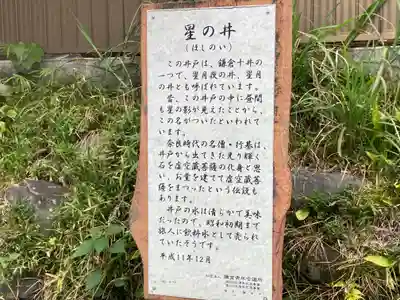 星の井
(ほしのい)
この井戸は、鎌倉十井の
一つで、星月夜の井、星月
の井とも呼ばれています。
昔、この井戸の中に昼間
も星の影が見えたことから、
この名がついたといわれて
います。
奈良時代の名僧・行基は、
井戸から出てきた光り輝く
石を虚空蔵菩薩の化身と思
い、お堂を建てて虚空蔵菩
薩をまつったという伝説も
あります。
井戸の水は清らかで美味
だったので、昭和初期まで
旅人に飲料水として売られ
ていたそうです。
平成11年12月